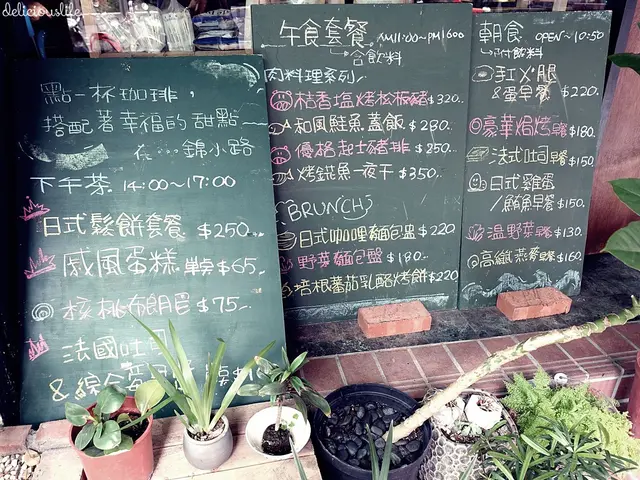 deliciouslife
點一杯咖啡，
搭配著幸福的甜點
在...錦小路
下午茶 14:00~17:00
日式鬆餅套餐 $250..
戚風蛋糕 單點$65..
核桃布朗尼 $75..
法國吐司
&綜合
午食套餐 AM11:00~PM1600
含飲料
肉料理系列
桔香塩烤松板豬$320..
和風鮭魚蓋飯 $280..
優格起士豬排 $250..
烤魠魚一夜干 $350..
BRUNCH
日式咖哩麵包盅 $220
野菜麵包盤 $180..
培根蕃茄乳酪烤餅 $220
朝食 OPEN~10:50
附飲料
&蛋早餐 $220.
豪華焗烤早餐 $180.
法式吐司早餐 $150
日式雞蛋
/鮪魚早餐 $150.
溫野菜早餐 $130.
高纖燕麥早餐 $160.